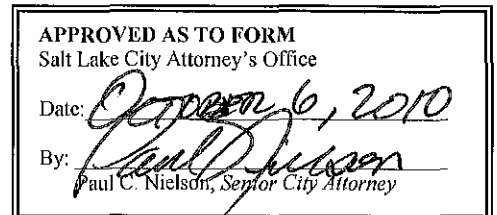 APPROVED AS TO FORM
Salt Lake City Attorney's Office
Date: OCTOBER 6, 2010
By: Paul C. Nielson
Paul C. Nielson, Senior City Attorney